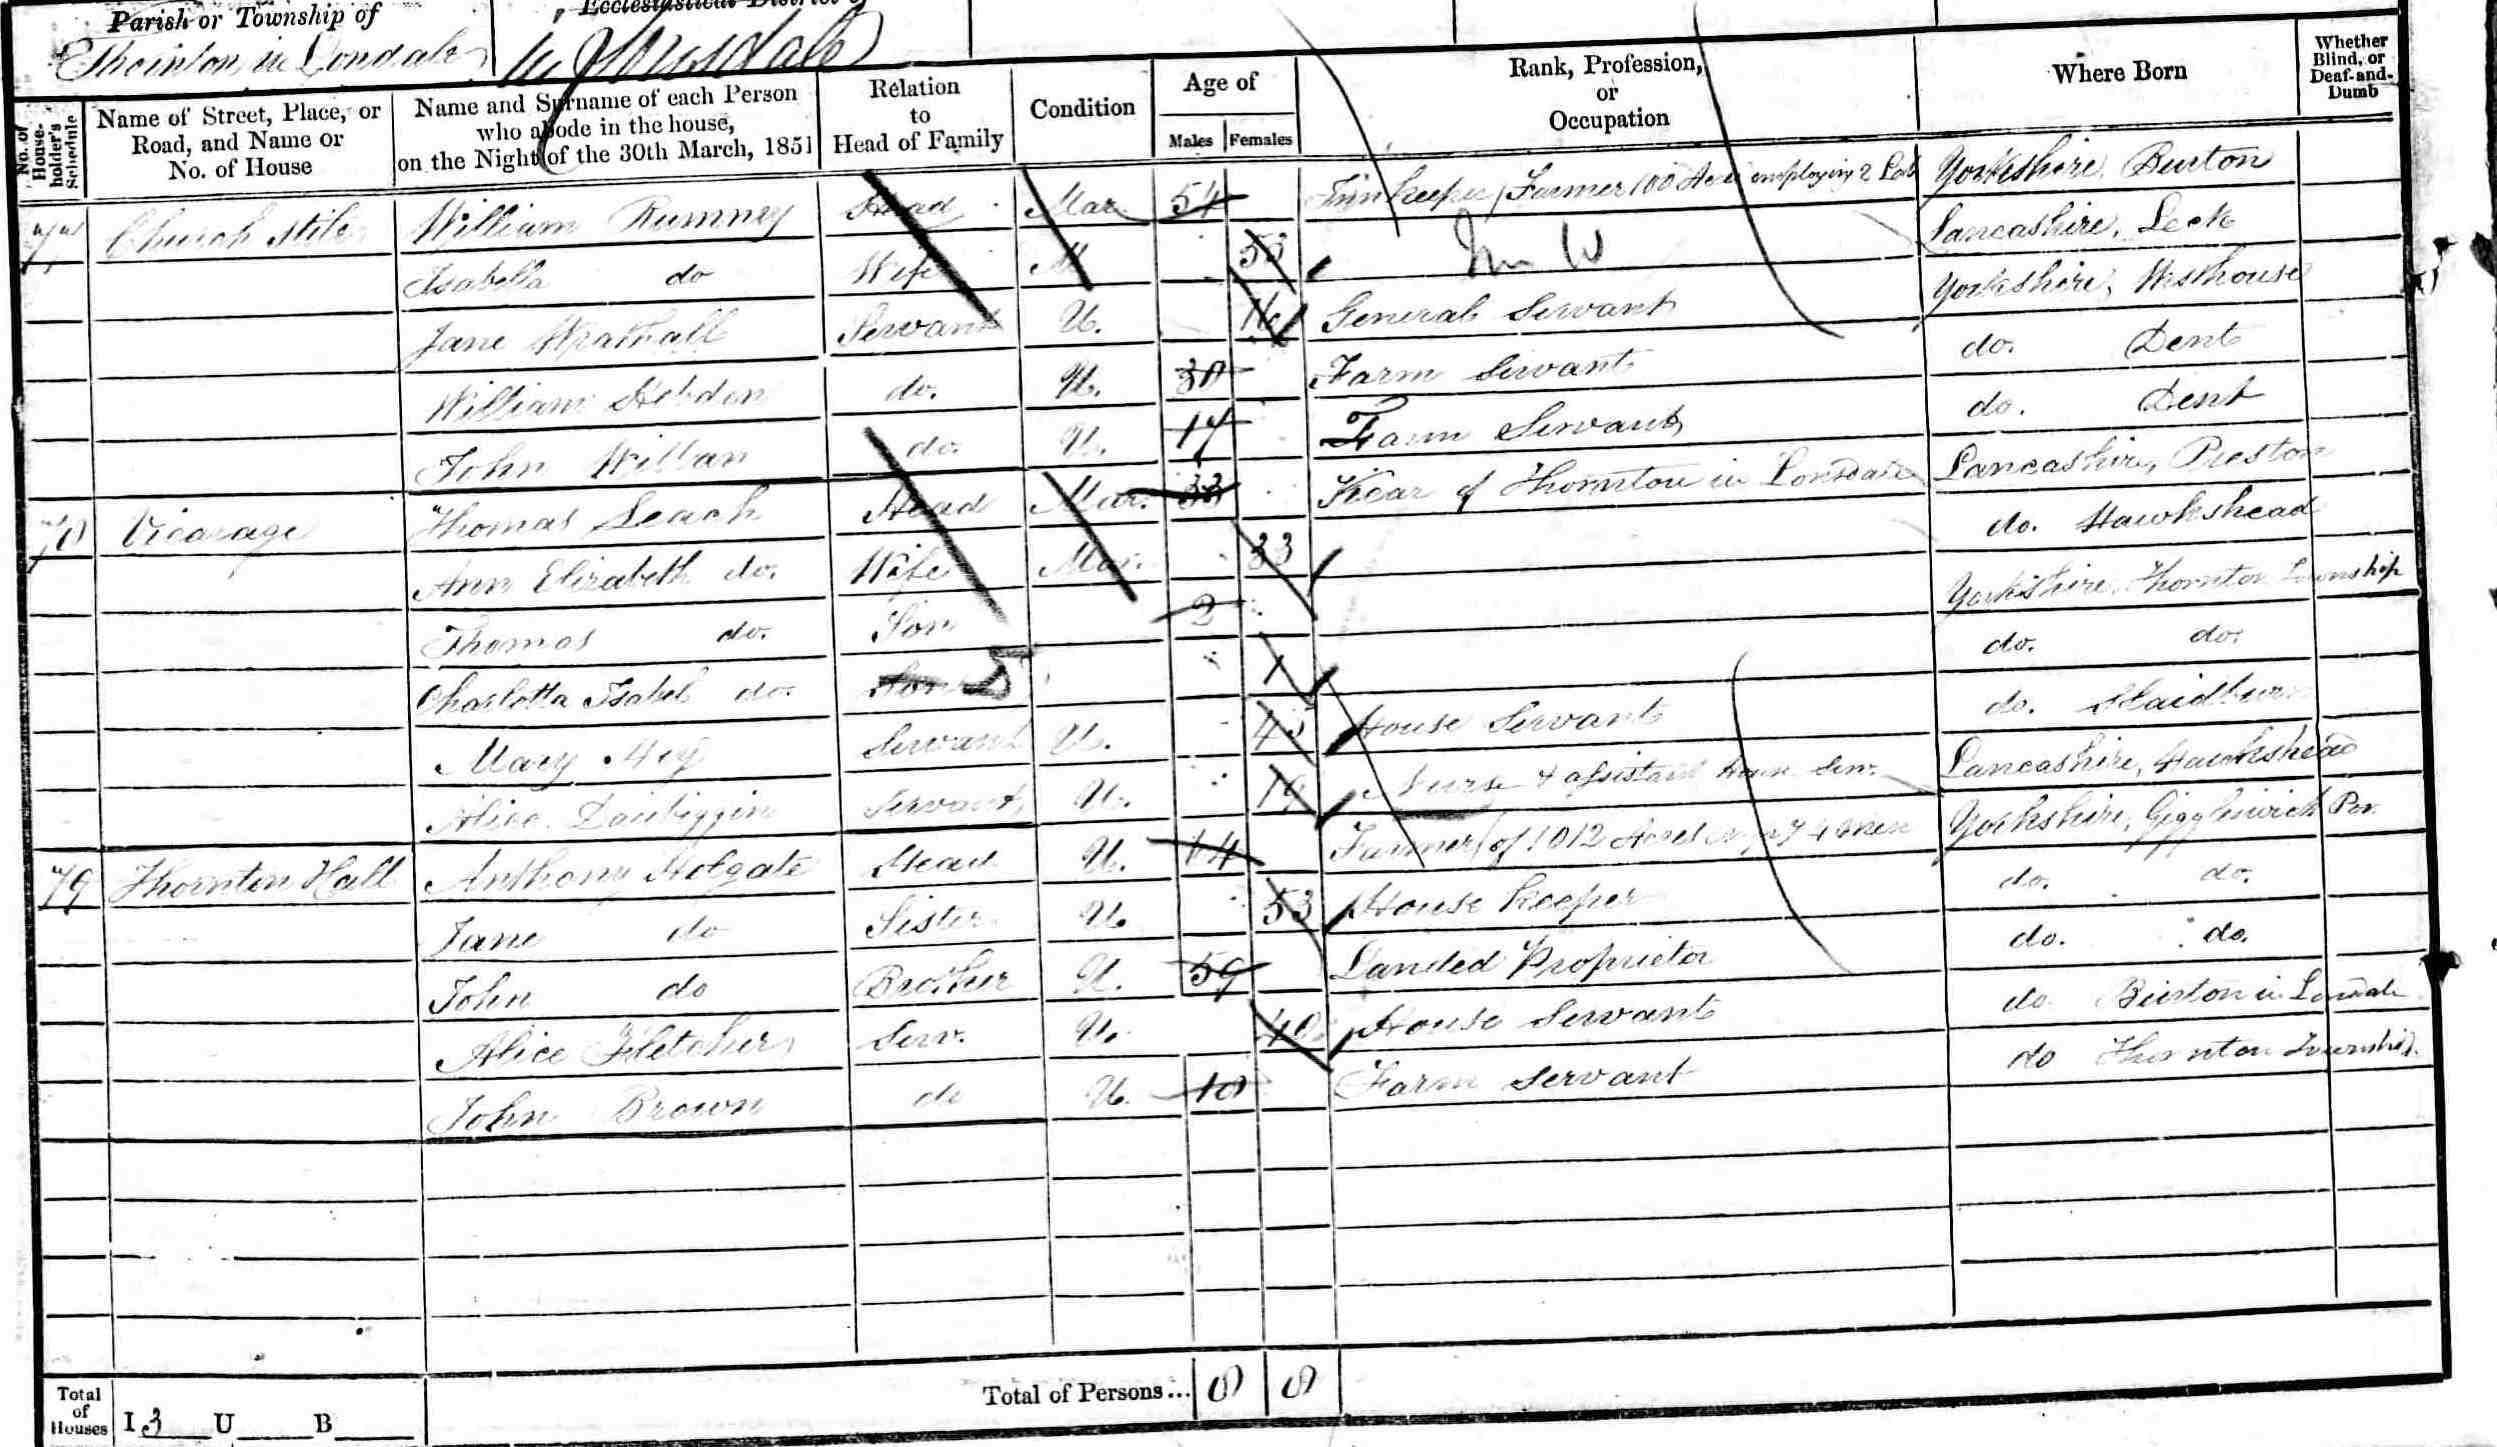 Parish or Township of
Ecclesiastical District of
Thornton in Lonsdale
No. of House-holder's Schedule
Name of Street, Place, or Road, and Name or No. of House
Name and Surname of each Person who abode in the house, on the Night of the 30th March, 1851
Relation to Head of Family
Condition
Age of
Males
Females
Rank, Profession, or Occupation
Where Born
Whether Blind, or Deaf-and-Dumb
77 Church Stile William Rumney Head Mar 54 Innkeeper Farmer 100 Acres employing 2 Lab Yorkshire, Burton
Isabella do Wife M 53 Lancashire, Leck
Jane Wrathall Servant U. 16 General Servant Yorkshire, Westhouse
William Hebden do. U. 30 Farm Servant do. Dent
John Willan do. U. 17 Farm Servant do. Dent
78 Vicarage Thomas Leach Head Mar. 33 Vicar of Thornton in Lonsdale Lancashire, Preston
Ann Elizabeth do. Wife Mar. 33 do. Hawkshead
Thomas do. Son 2 Yorkshire, Thornton Township
Charlotta Isabel do. D 1 do. do.
Mary Servant U. 45 House Servant do. Slaidburn
Alice Servant U. 19 Nurse & assistant House Serv. Lancashire, Hawkshead
79 Thornton Hall Anthony Holgate Head U. Farmer of 1012 Acres 4 men Yorkshire, Giggleswick Par.
Jane do Sister U 53 House Keeper do. do.
John do Brother U. 59 Landed Proprietor do. do.
Alice Fletcher Serv. U. 40 House Servant do Burton in Lonsdale
John Brown do U. 18 Farm Servant do Thornton Township.
Total of Houses I 3 U B
Total of Persons... 8 8